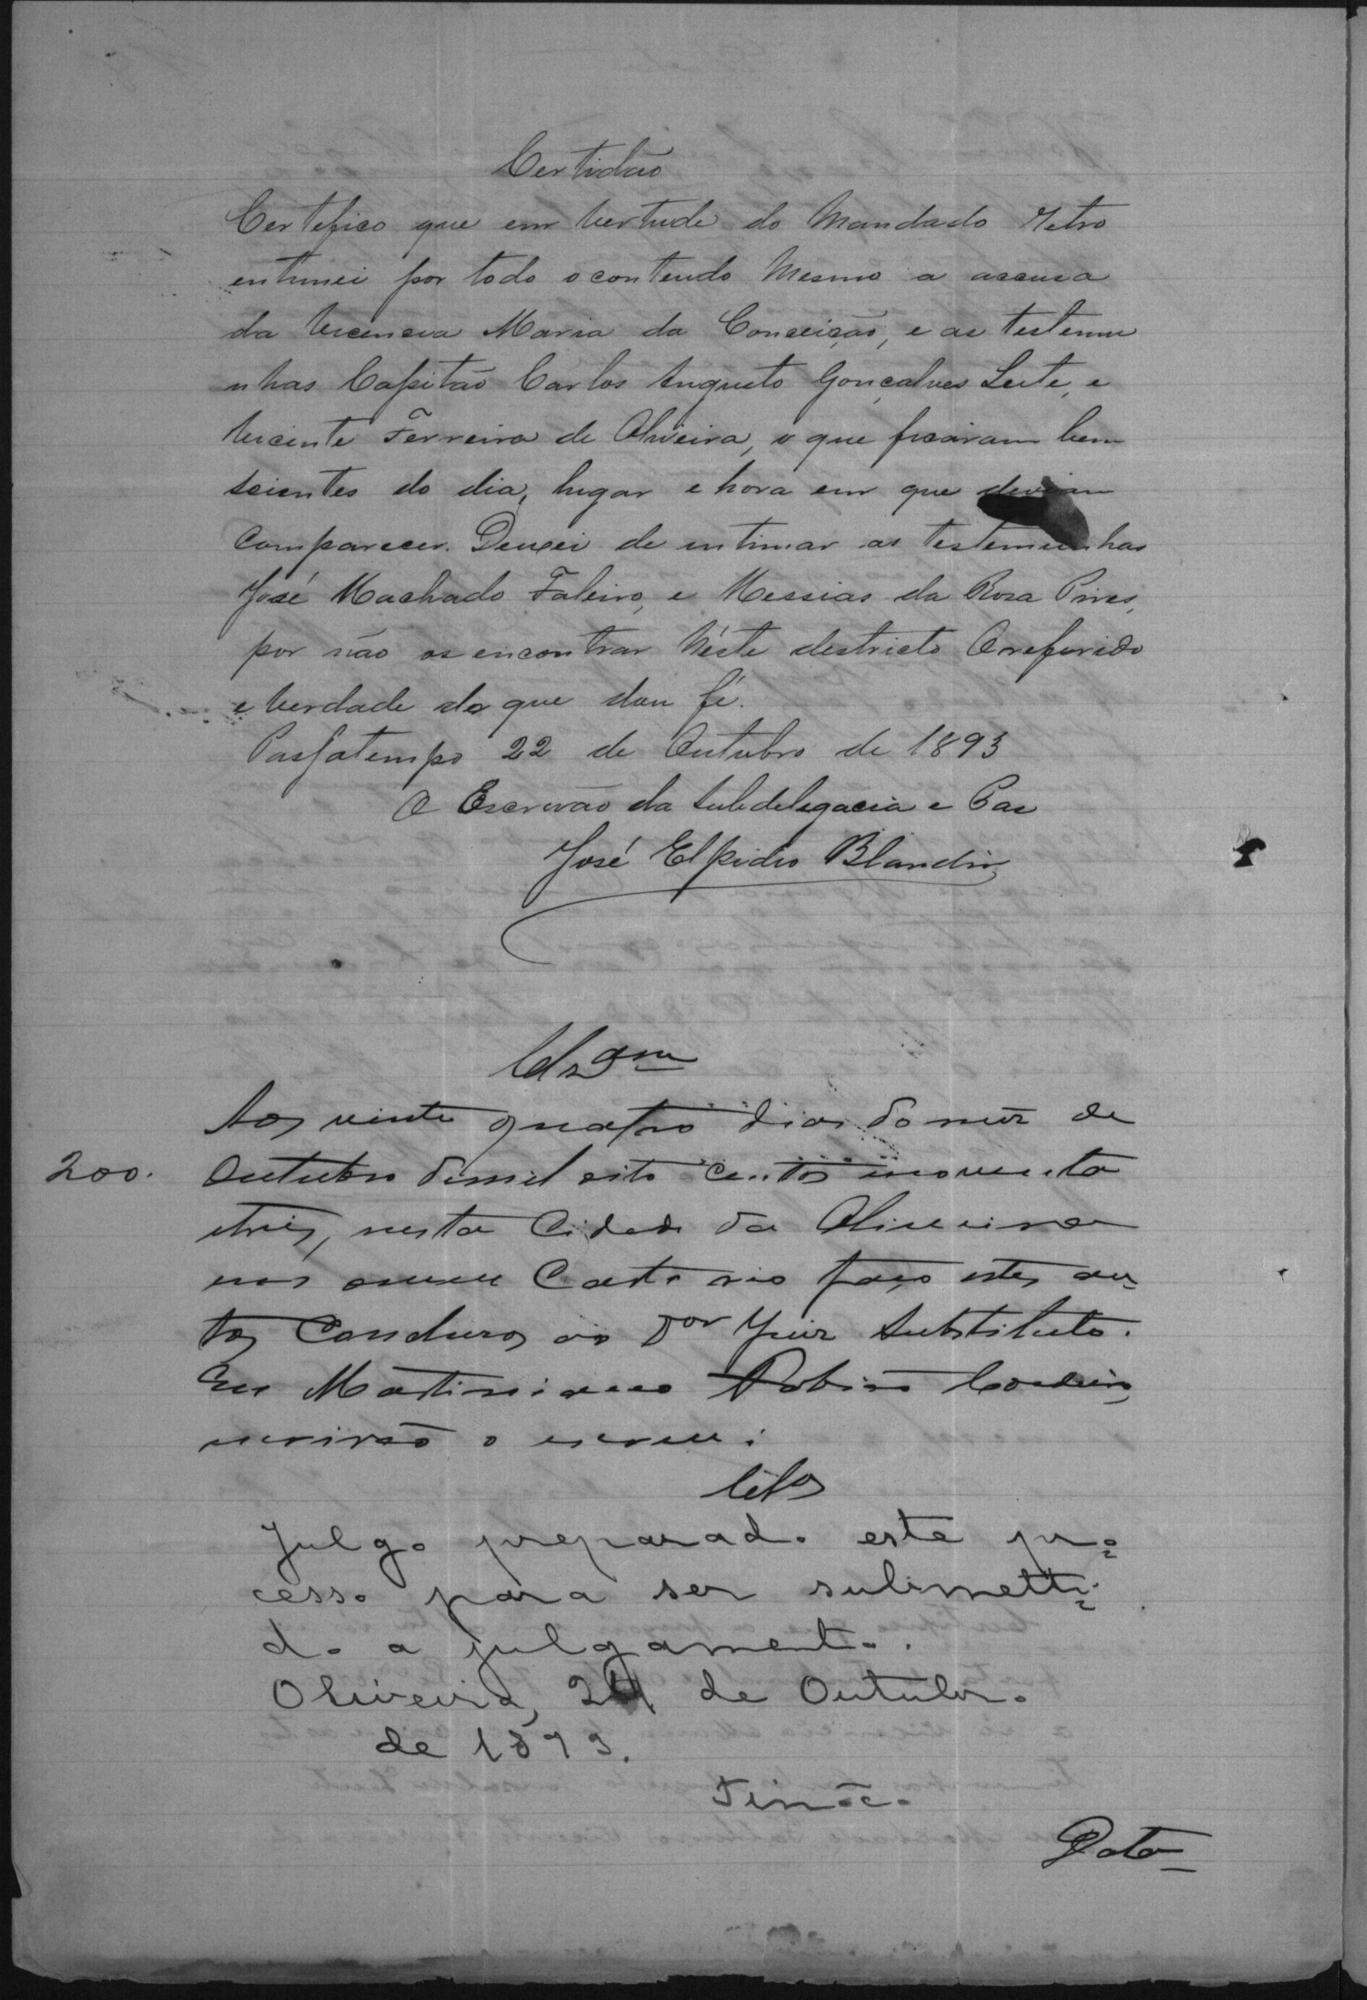 Certidão
Certefico que em Vertude do Mandado Retro
entimei por todo o contendo Mesmo a accuza
da Vicencia Maria da Conceição, e as testemu
nhas Capitão Carlos Augusto Gonçalves Leite, e
Vicente Ferreira de Oliveira, o que ficaram bem
scientes do dia, lugar e hora em que deviam
comparecer. Deixei de intimar as testemunhas
José Machado Faleiro, e Messias da Rosa Pires,
por não os encontrar Néste destricto O referido
e Verdade do que dou fé.
Passatempo 22 de Outubro de 1893
O Escrivão da Subdelegacia e Paz
José Elpidio Blandin
Clsam
Aos vinte quatro dias do mez de
200.
Outubro de mil oito centos inoventa
etres, nesta Cidade da Oliveira
em meu Cartorio faço estes au
tos Concluzos ao Dor Juiz Substituto.
Eu Martiniano
escrivão o escrevi.
Clos
Julgo preparado este pro=
cesso para ser submetti=
do a julgamento.
Oliveira, 24 de Outubro
de 1893.
Tinôco
Data